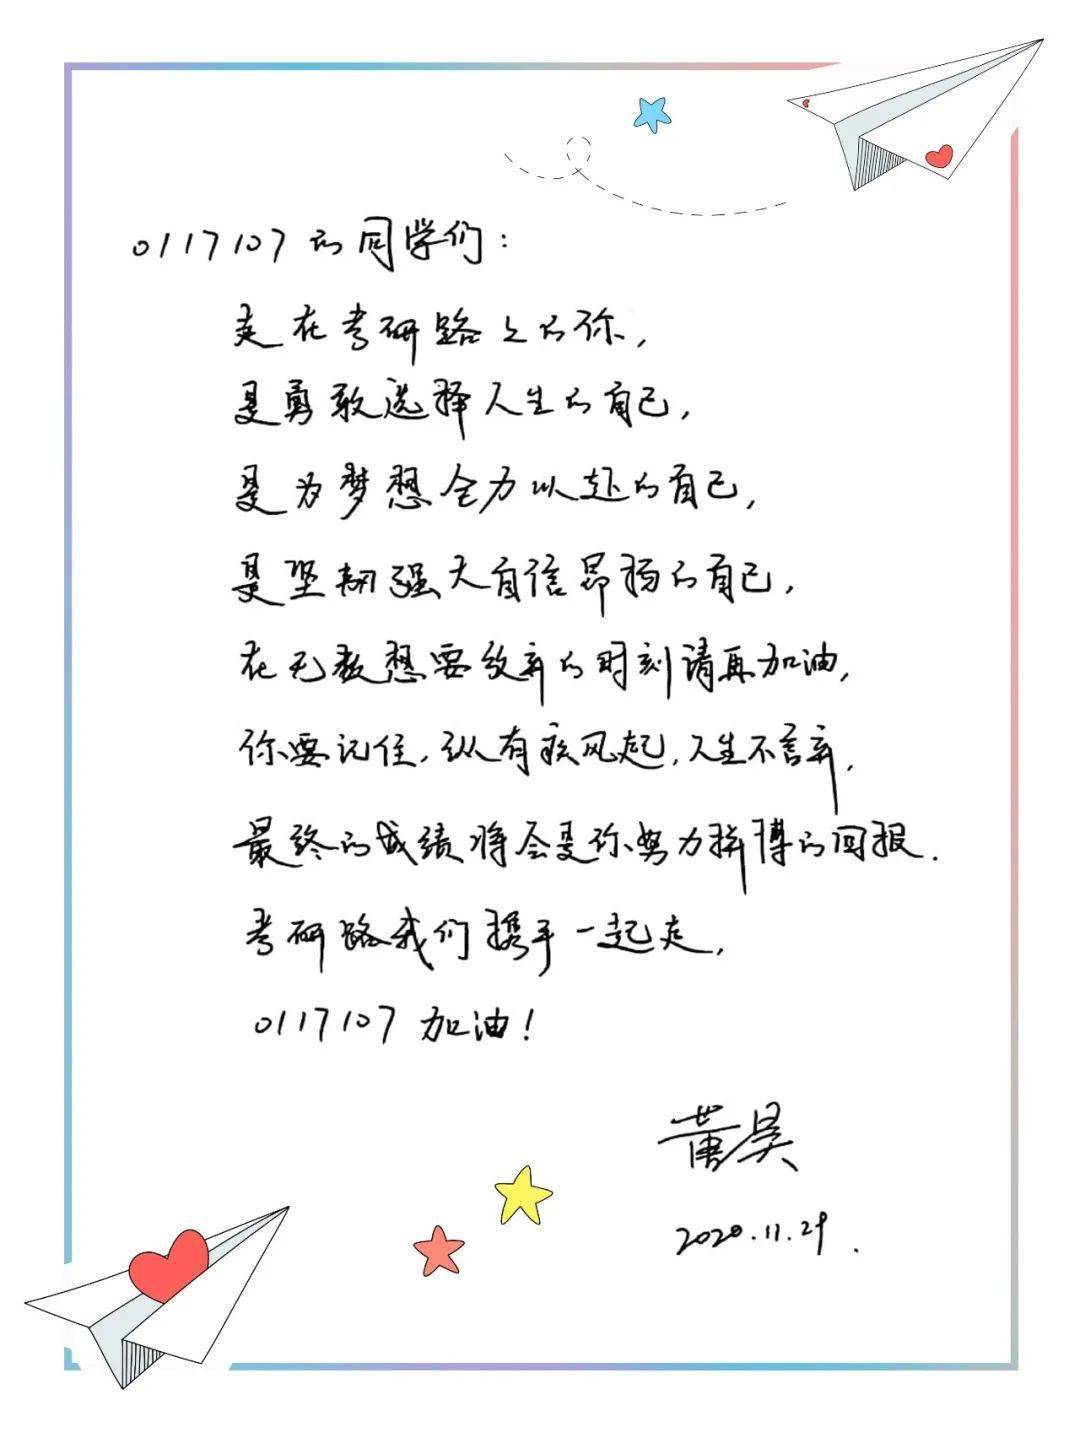 0117107的同学们：
走在考研路上的你，
是勇敢选择人生的自己，
是为梦想全力以赴的自己，
是坚韧强大自信昂扬的自己，
在无数想要放弃的时刻请再加油，
你要记住，纵有疾风起，人生不言弃，
最终的成绩将会是你努力拼搏的回报．
考研路我们携手一起走，
0117107 加油！
董昊
2020.11.29．